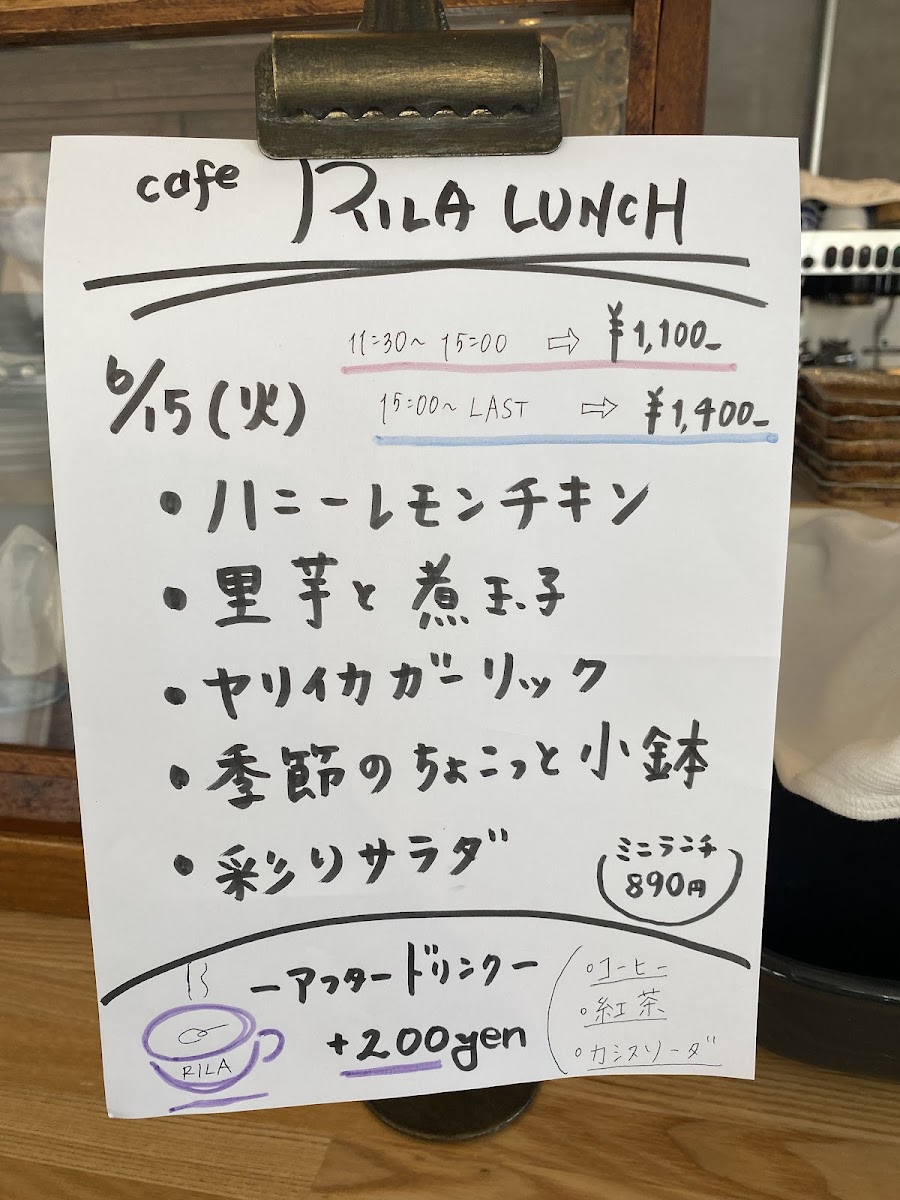 cafe RILA LUNCH
11:30〜15:00 ⇨ ¥1,100-
6/15(火)
15:00〜LAST ⇨ ¥1,400-
・ハニーレモンチキン
・里芋と煮玉子
・ヤリイカガーリック
・季節のちょこっと小鉢
・彩りサラダ
ミニランチ
890円
ーアフタードリンクー
+200yen
。コーヒー
。紅茶
。カシスソーダ
RILA